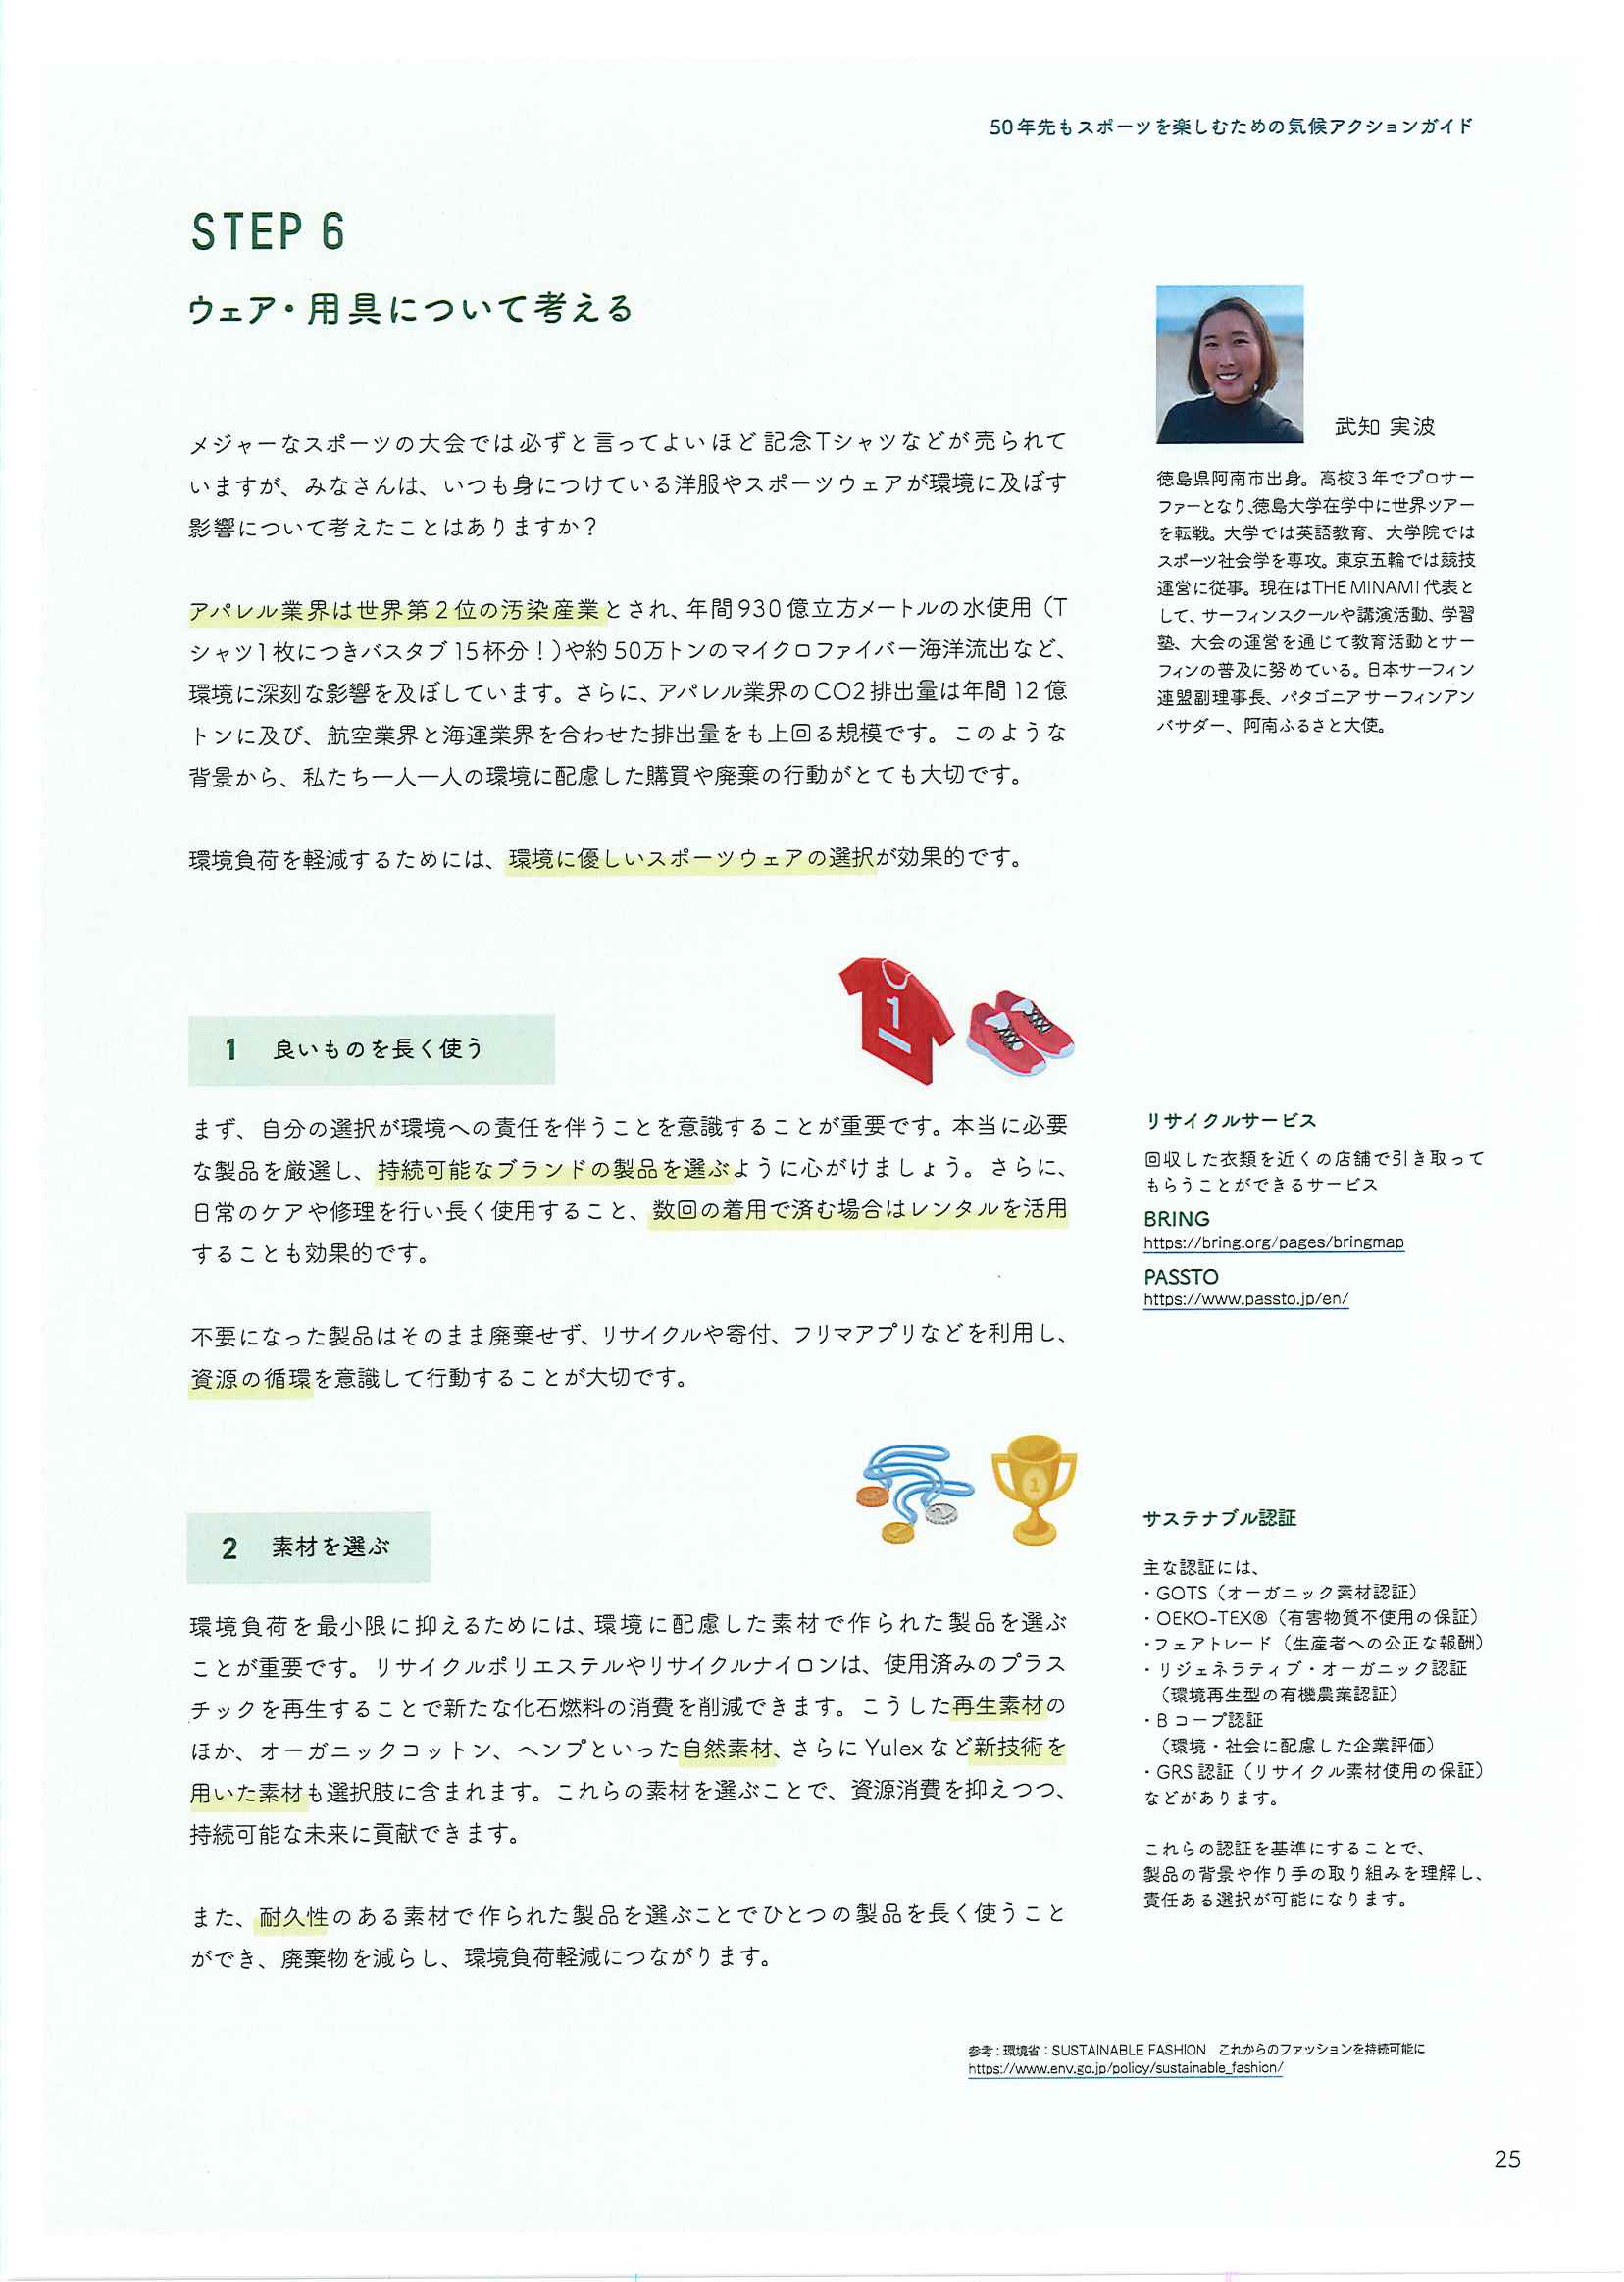 50年先もスポーツを楽しむための気候アクションガイド
STEP 6
ウェア・用具について考える
メジャーなスポーツの大会では必ずと言ってよいほど記念Tシャツなどが売られて
いますが、みなさんは、いつも身につけている洋服やスポーツウェアが環境に及ぼす
影響について考えたことはありますか？
アパレル業界は世界第2位の汚染産業とされ、年間930億立方メートルの水使用（T
シャツ1枚につきバスタブ15杯分！）や約50万トンのマイクロファイバー海洋流出など、
環境に深刻な影響を及ぼしています。さらに、アパレル業界のCO2排出量は年間12億
トンに及び、航空業界と海運業界を合わせた排出量をも上回る規模です。このような
背景から、私たち一人一人の環境に配慮した購買や廃棄の行動がとても大切です。
環境負荷を軽減するためには、環境に優しいスポーツウェアの選択が効果的です。
武知 実波
徳島県阿南市出身。高校3年でプロサー
ファーとなり、徳島大学在学中に世界ツアー
を転戦。大学では英語教育、大学院では
スポーツ社会学を専攻。東京五輪では競技
運営に従事。現在はTHE MINAMI代表と
して、サーフィンスクールや講演活動、学習
塾、大会の運営を通じて教育活動とサー
フィンの普及に努めている。日本サーフィン
連盟副理事長、パタゴニアサーフィンアン
バサダー、阿南ふるさと大使。
1
1 良いものを長く使う
まず、自分の選択が環境への責任を伴うことを意識することが重要です。本当に必要
な製品を厳選し、持続可能なブランドの製品を選ぶように心がけましょう。さらに、
日常のケアや修理を行い長く使用すること、数回の着用で済む場合はレンタルを活用
することも効果的です。
不要になった製品はそのまま廃棄せず、リサイクルや寄付、フリマアプリなどを利用し、
資源の循環を意識して行動することが大切です。
リサイクルサービス
回収した衣類を近くの店舗で引き取って
もらうことができるサービス
BRING
https://bring.org/pages/bringmap
PASSTO
https://www.passto.jp/en/
1
2 素材を選ぶ
環境負荷を最小限に抑えるためには、環境に配慮した素材で作られた製品を選ぶ
ことが重要です。リサイクルポリエステルやリサイクルナイロンは、使用済みのプラス
チックを再生することで新たな化石燃料の消費を削減できます。こうした再生素材の
ほか、オーガニックコットン、ヘンプといった自然素材、さらにYulexなど新技術を
用いた素材も選択肢に含まれます。これらの素材を選ぶことで、資源消費を抑えつつ、
持続可能な未来に貢献できます。
また、耐久性のある素材で作られた製品を選ぶことでひとつの製品を長く使うこと
ができ、廃棄物を減らし、環境負荷軽減につながります。
サステナブル認証
主な認証には、
・GOTS（オーガニック素材認証）
・OEKO-TEX®（有害物質不使用の保証）
・フェアトレード（生産者への公正な報酬）
・リジェネラティブ・オーガニック認証
（環境再生型の有機農業認証）
・Bコープ認証
（環境・社会に配慮した企業評価）
・GRS認証（リサイクル素材使用の保証）
などがあります。
これらの認証を基準にすることで、
製品の背景や作り手の取り組みを理解し、
責任ある選択が可能になります。
参考：環境省：SUSTAINABLE FASHION これからのファッションを持続可能に
https://www.env.go.jp/policy/sustainable_fashion/
25